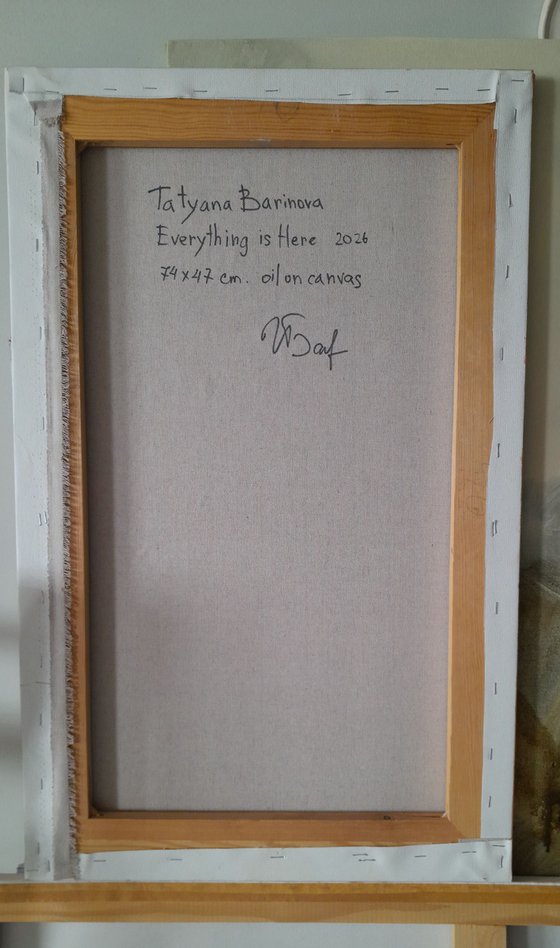 Tatyana Barinova
Everything is Here 2026
74x47 cm. oil on canvas